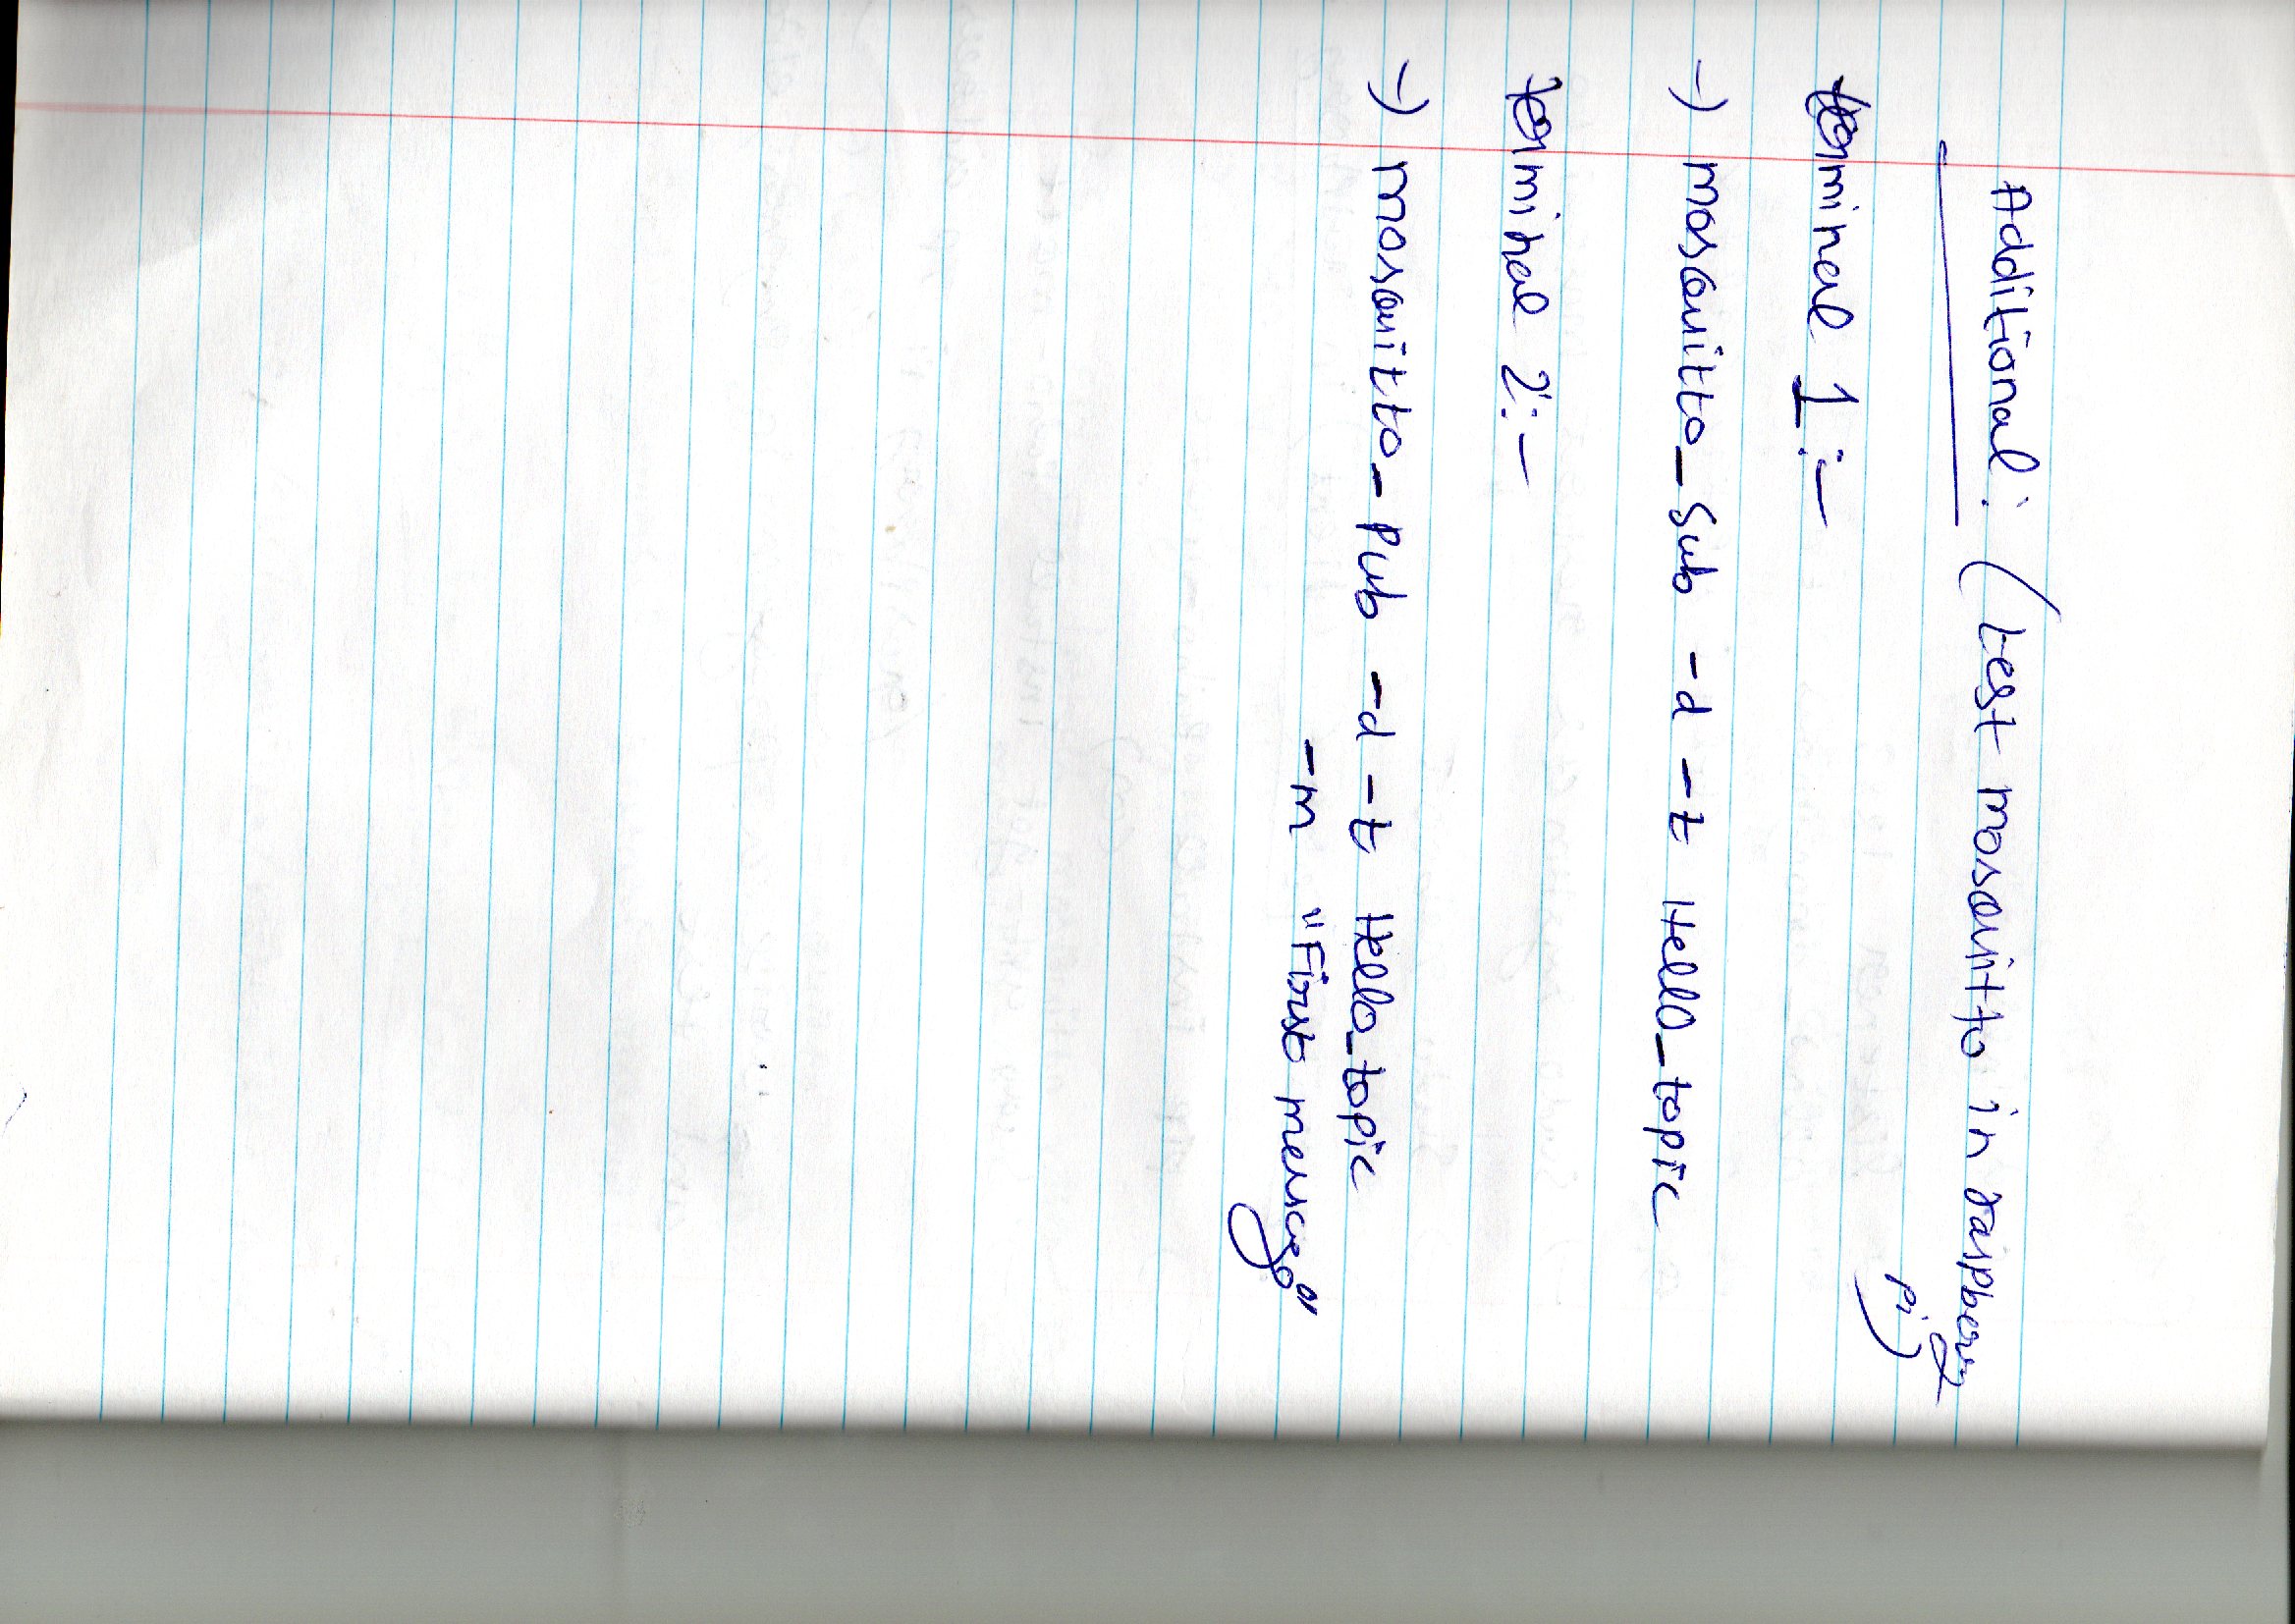 Additional: (test mosquitto in raspberry
pi)
terminal 1:-
-> mosquitto_sub -d -t Hello_topic
terminal 2:-
-> mosquitto_pub -d -t Hello_topic
-m "First message"